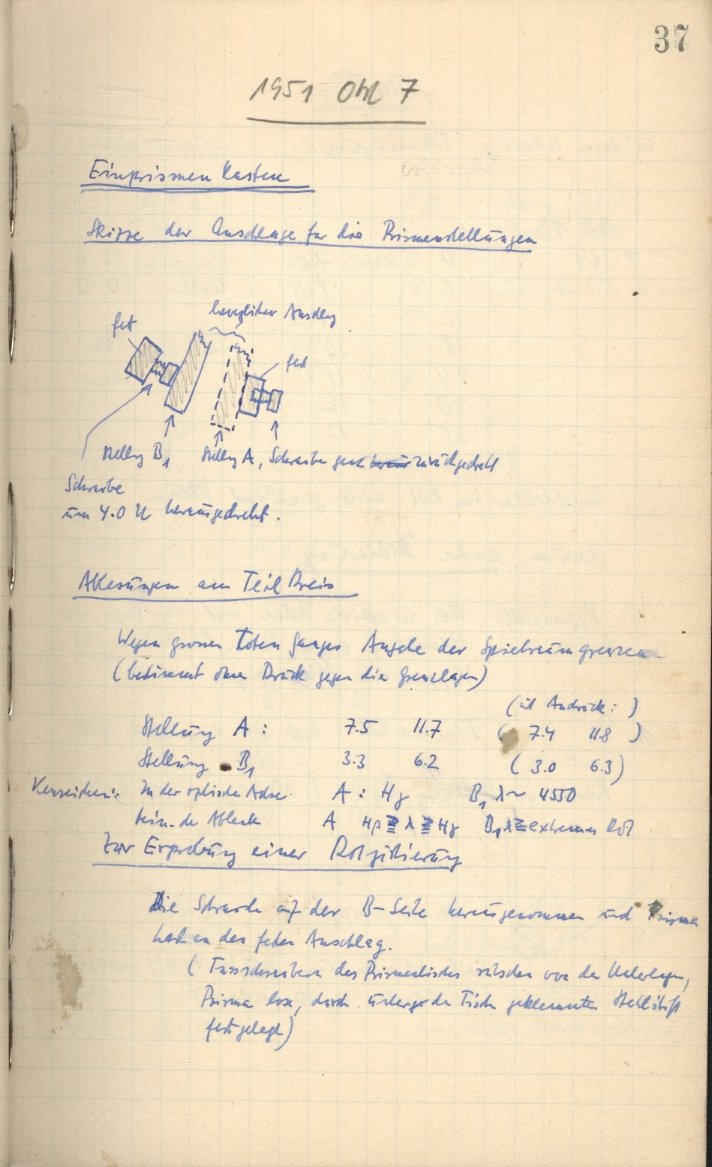 37
1951 Okt 7
Einprismen Kasten
Skizze der Anschläge für die Prismenstellungen
beweglicher Anschlag
fest
fest
Stellung B1
Stellung A, Schraube ganz zurückgedreht
Schraube
um 4.0 U herausgedreht.
Ablesungen am Teil Kreis
Wegen grossen toten Ganges Angabe der Spielraumgrenzen
(bestimmt ohne Druck gegen die Grenzlagen)
(mit Andruck: )
Stellung A: 7.5 11.7 ( 7.4 11.8 )
Stellung B1 3.3 6.2 ( 3.0 6.3 )
Kennzeichen: In der optische Achse A: Hγ B1 λ~ 4550
A Hβ ≧ λ ≧ Hγ B1 λ ≧ extremes Rot
Zur Erprobung einer
Die Schraube auf der B-Seite herausgenommen und Prisma
hart an den festen Anschlag.
( Fussschrauben des Prismentisches von der Unterlage,
Prisma lose, durch Tisch geklemmten Stahlstift
festgelegt)